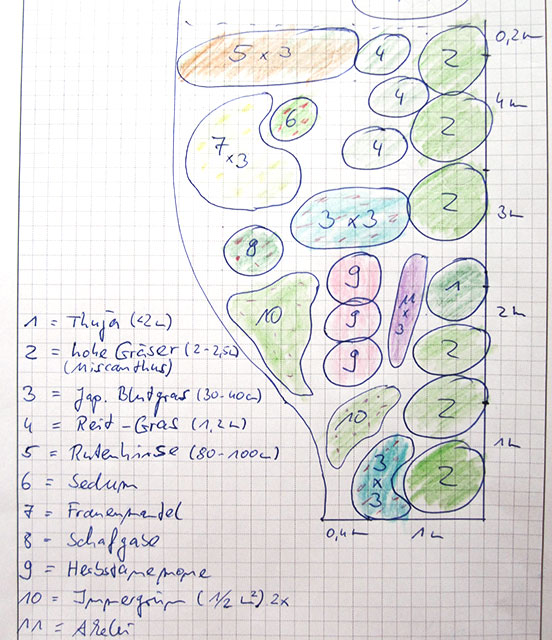 5 x 3
4
2
0,2m
4
4m
6
2
7 x3
4
2
3 x 3
3m
8
9
11 x 3
1
10
9
2m
9
2
10
2
1m
3 x 3
2
0,4m
1m
1 = Thuja (<2m)
2 = hohe Gräser (2-2,5m)
(Miscanthus)
3 = Jap. Blutgras (30-40cm)
4 = Reit-Gras (1,2m)
5 = Rutenhirse (80-100cm)
6 = Sedum
7 = Frauenmantel
8 = Schafgabe
9 = Herbstanemone
10 = Immergrün (1/2 m²) 2x
11 =